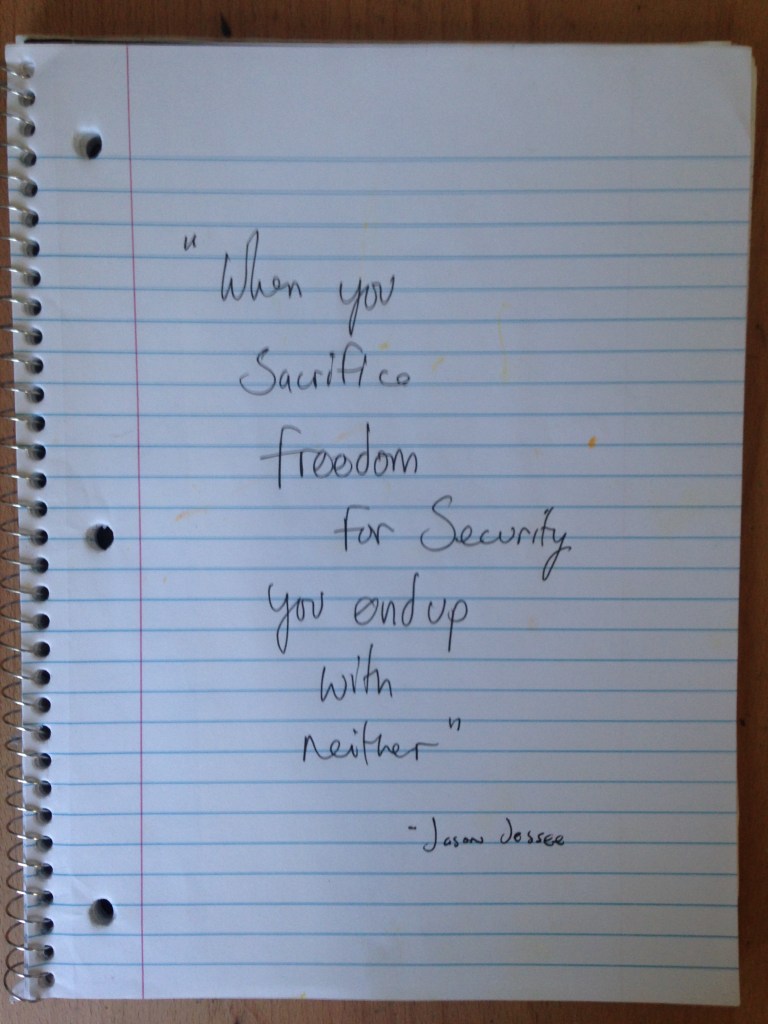 "When you
Sacrifice
freedom
for Security
you end up
with
neither"
- Jason Jossee